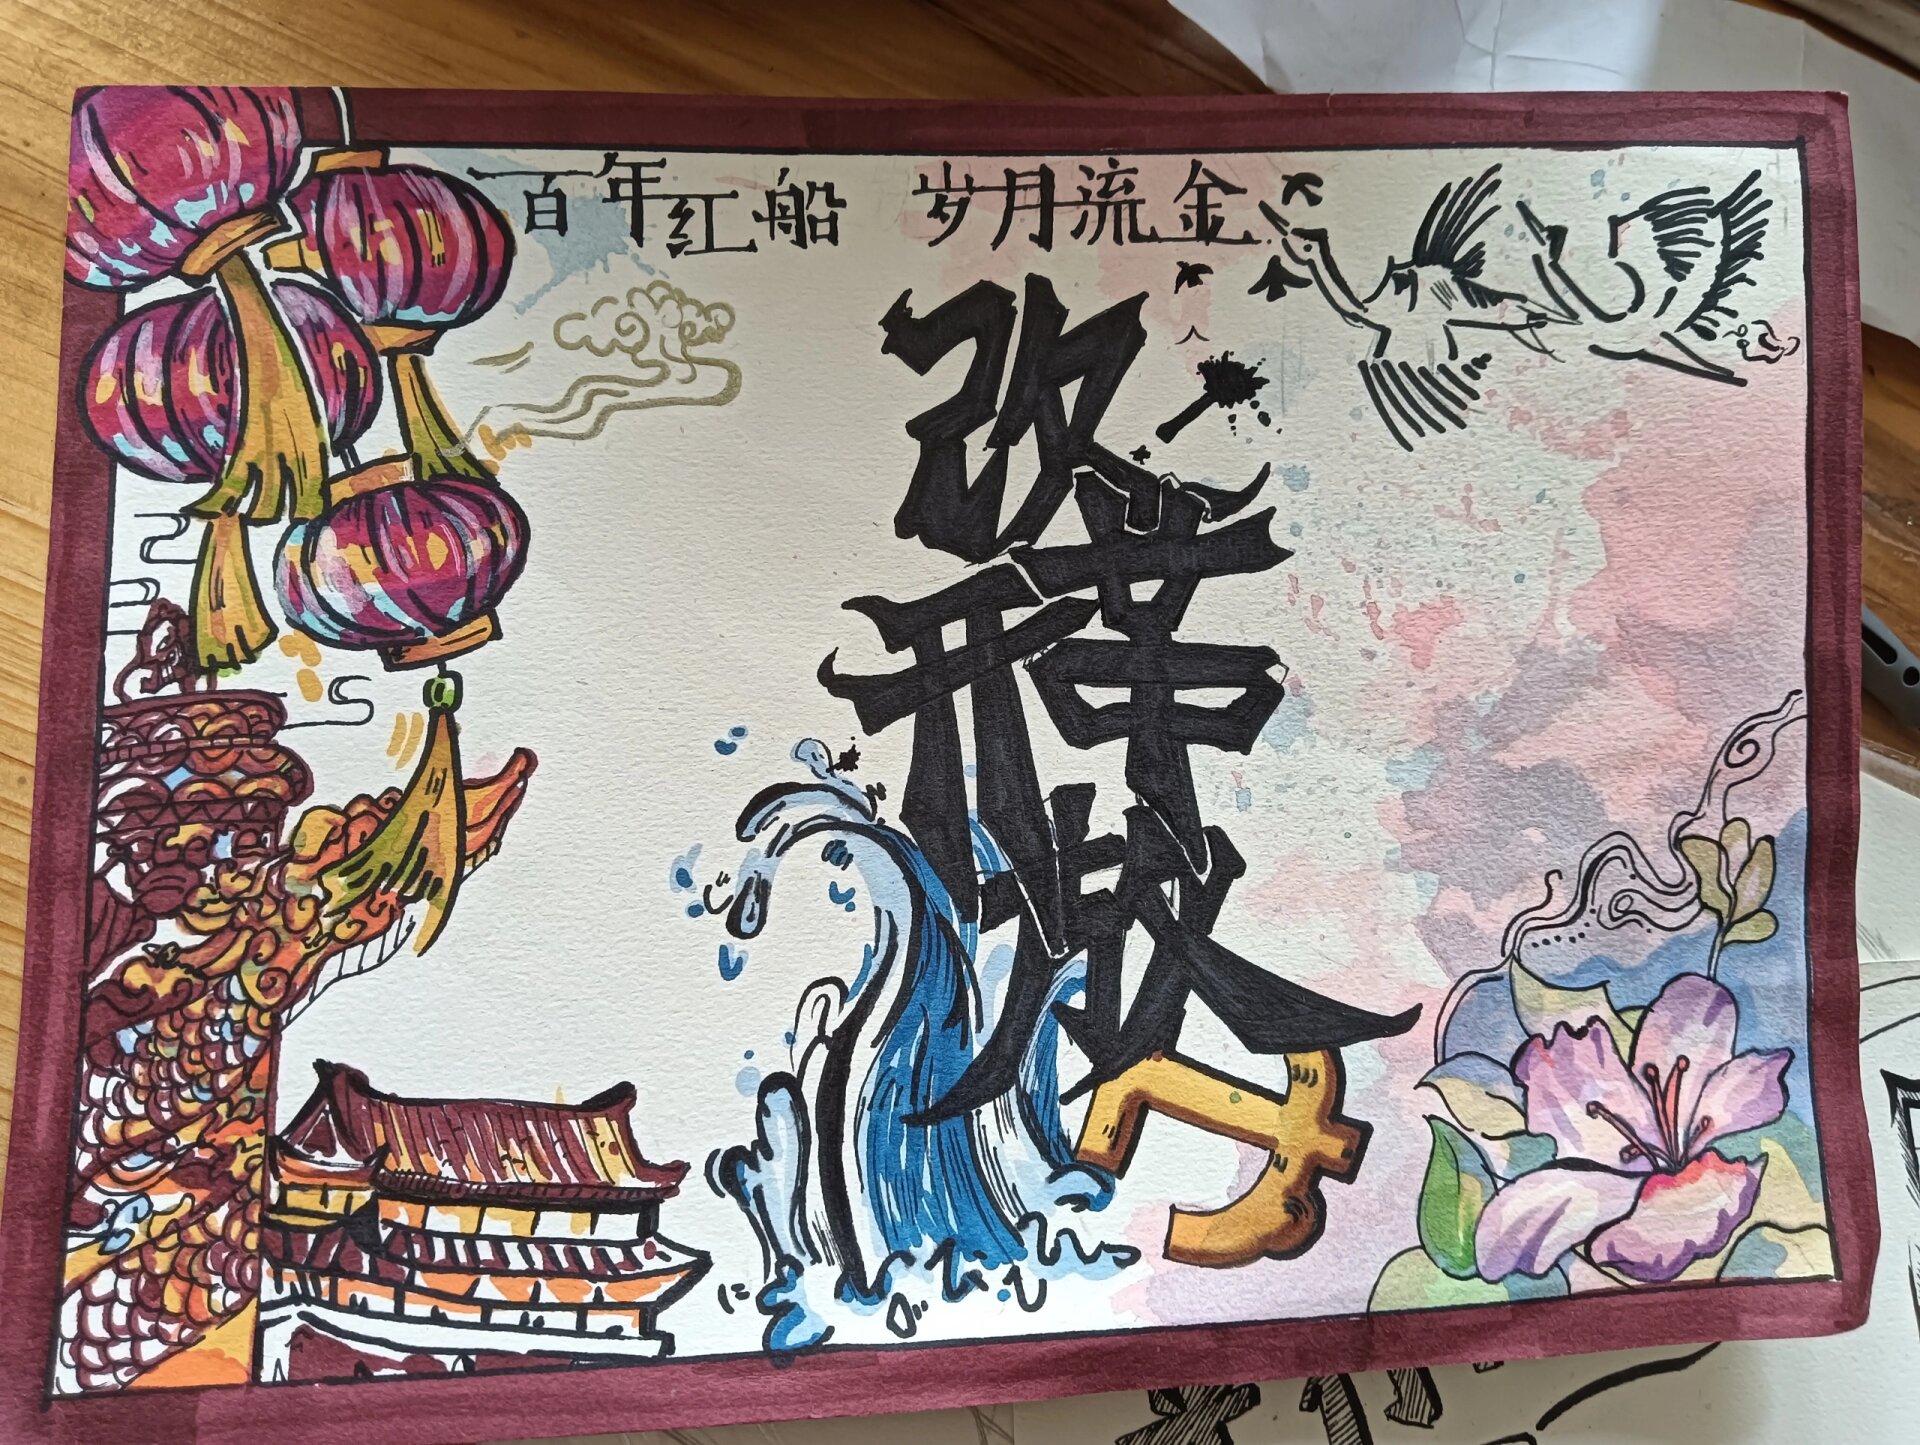 百年红船 岁月流金
改革
开放